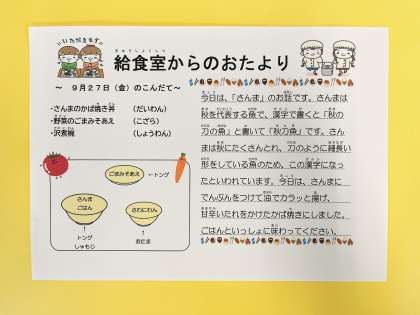 いただきます
給食室からのおたより
～　９月２７日（金）のこんだて～
・さんまのかば焼き丼　（だいわん）
・野菜のごまみそあえ　（こざら）
・沢煮椀　（しょうわん）
ごまみそあえ
←トング
さんま
ごはん
さわにわん
↑
トング
しゃもじ
↑
おたま
今日は、「さんま」のお話です。さんまは
秋を代表する魚で、漢字で書くと「秋の
刀の魚」と書いて「秋刀魚」です。さん
まは秋にたくさんとれ、刀のように細長い
形をしている魚のため、この漢字になっ
たといわれています。今日は、さんまに
でんぷんをつけて油でカラッと揚げ、
甘辛いたれをかけたかば焼きにしました。
ごはんといっしょに味わってください。